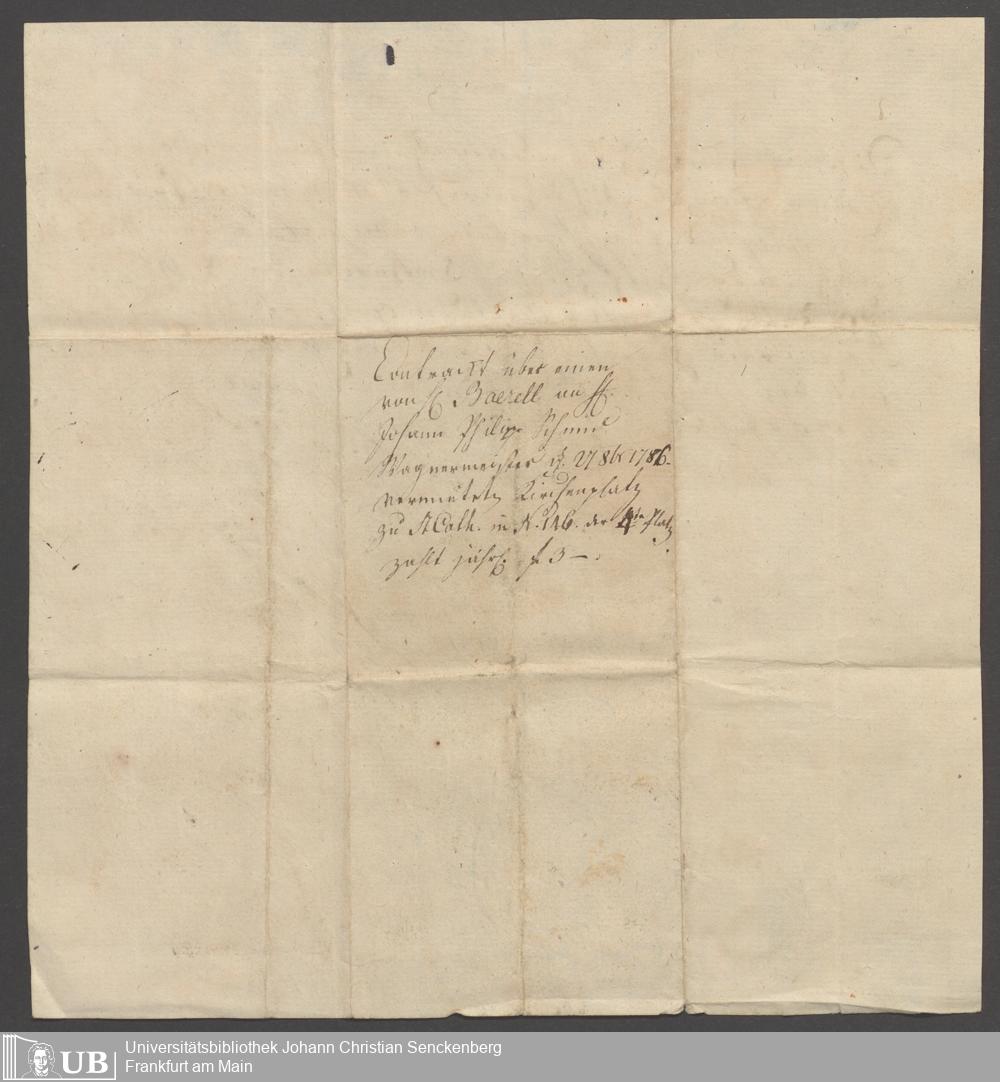 Contrackt über einen
von H. Baerell an H.
Johann Philipp Schmid
Wagnermeister d. 8br 1786.
vermieteten Kirchenplatz
zu St Cath. in N. 146. der 4te Platz
zahlt jährl. f 3 —.
UB
Universitätsbibliothek Johann Christian Senckenberg
Frankfurt am Main